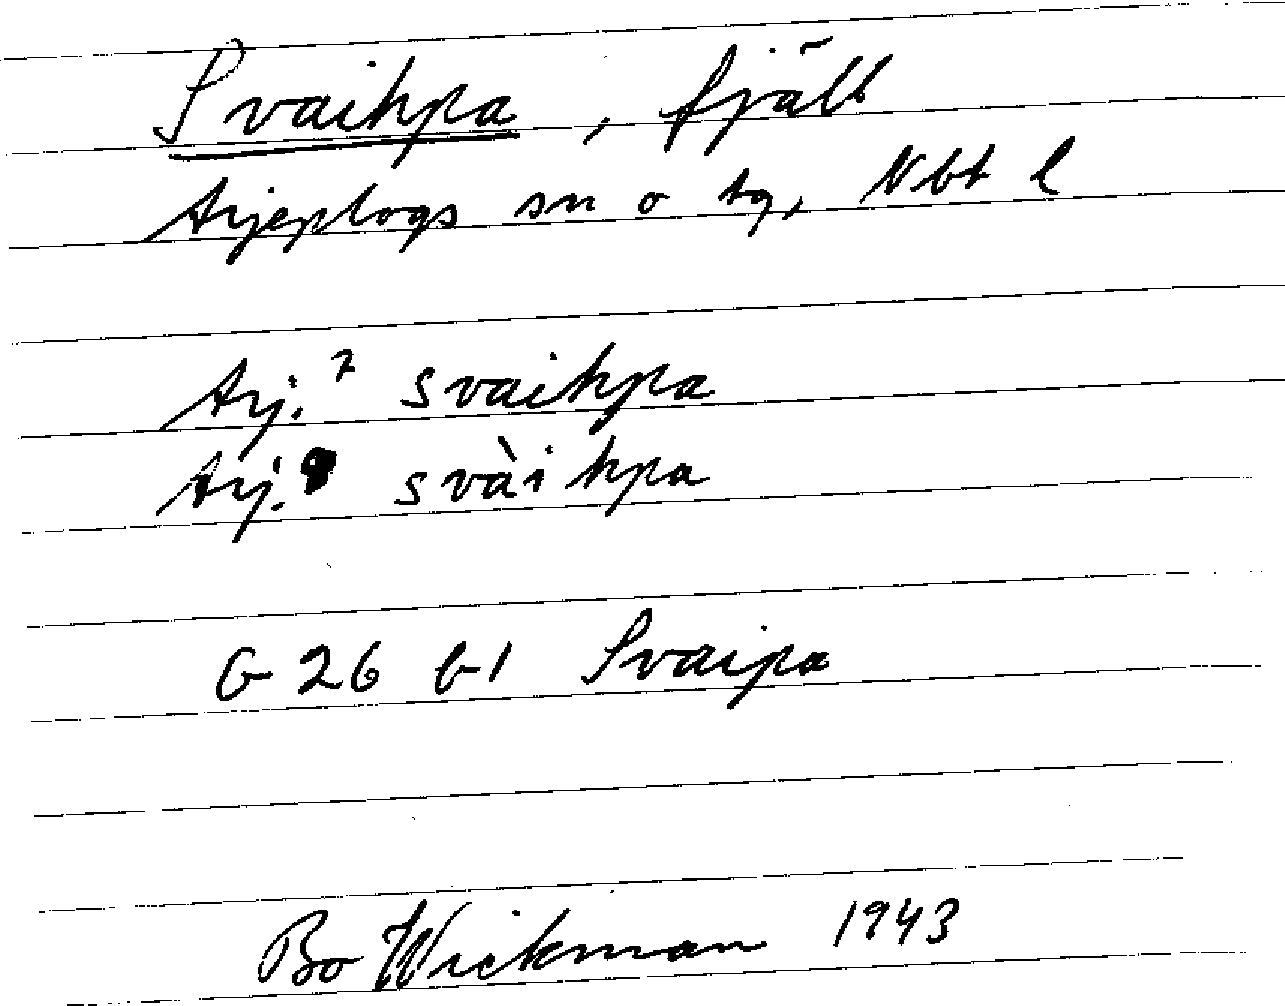 Svaihpa, fjäll
Arjeplogs sn o tg, Nbt l
Arj.⁷ svaihpa
Arj.⁹ svàihpa
G 26 b1 Svaipa
Bo Wickman 1943